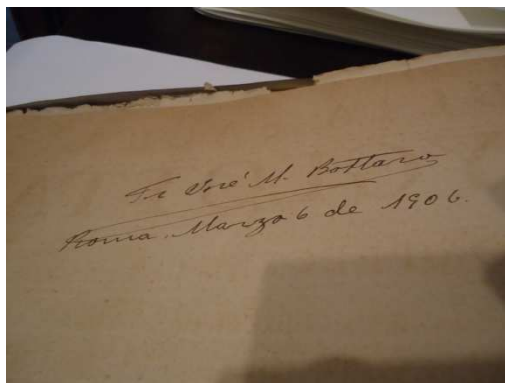 Fr José M. Bottaro
Roma Marzo 6 de 1906.